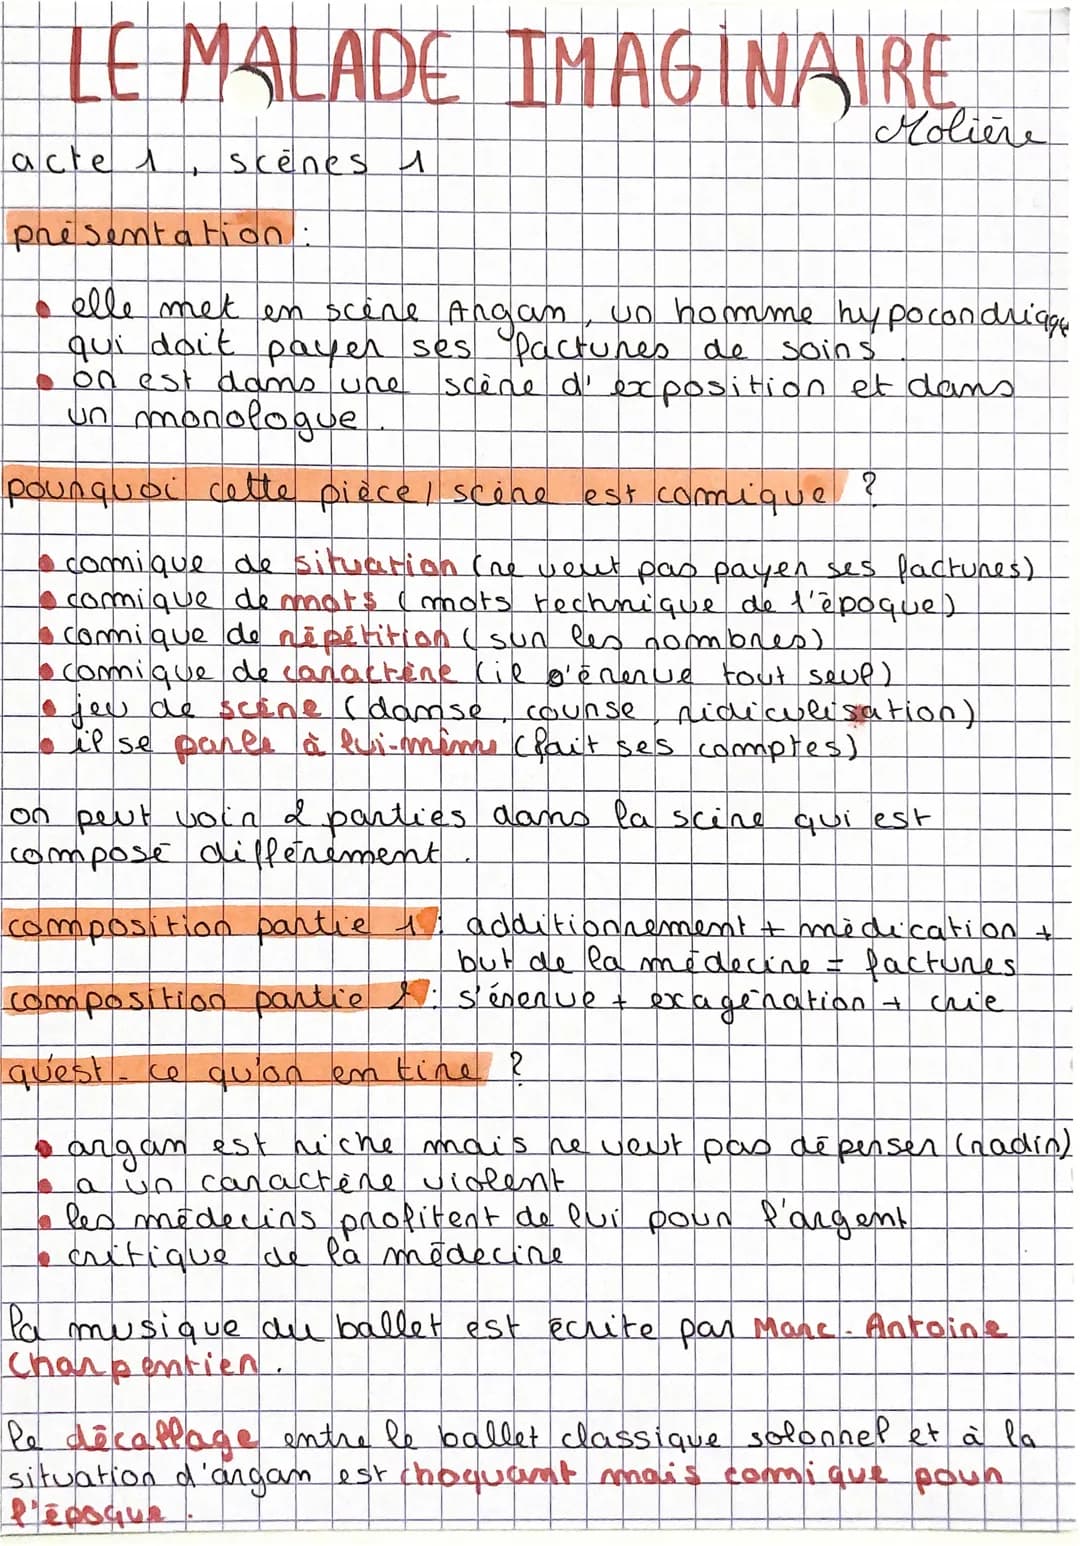 LE MALADE IMAGINAIRE
Molière
acte 1, scènes 1
présentation :
• elle met en scène Argan, un homme hypocondriaque
qui doit payer ses factures de soins.
• on est dans une scène d'exposition et dans
un monologue.
pourquoi cette pièce / scène est comique ?
• comique de situation (ne veut pas payer ses factures)
• comique de mots (mots technique de l'époque)
• comique de répétition (sur les nombres)
• comique de caractère (il s'énerve tout seul)
• jeu de scène (danse, course, ridiculisation)
• il se parle à lui-même (fait ses comptes)
on peut voir 2 parties dans la scène qui est
composé différement.
composition partie 1 : additionnement + médication +
but de la médecine = factures
composition partie 2 : s'énerve + exagération + crie
qu'est-ce qu'on en tire ?
• argan est riche mais ne veut pas dépenser (radin)
• a un caractère violent
• les médecins profitent de lui pour l'argent
• critique de la médecine
la musique du ballet est écrite par Marc-Antoine
Charpentier.
le décallage entre le ballet classique solonnel et à la
situation d'argan est choquant mais comique pour
l'époque.